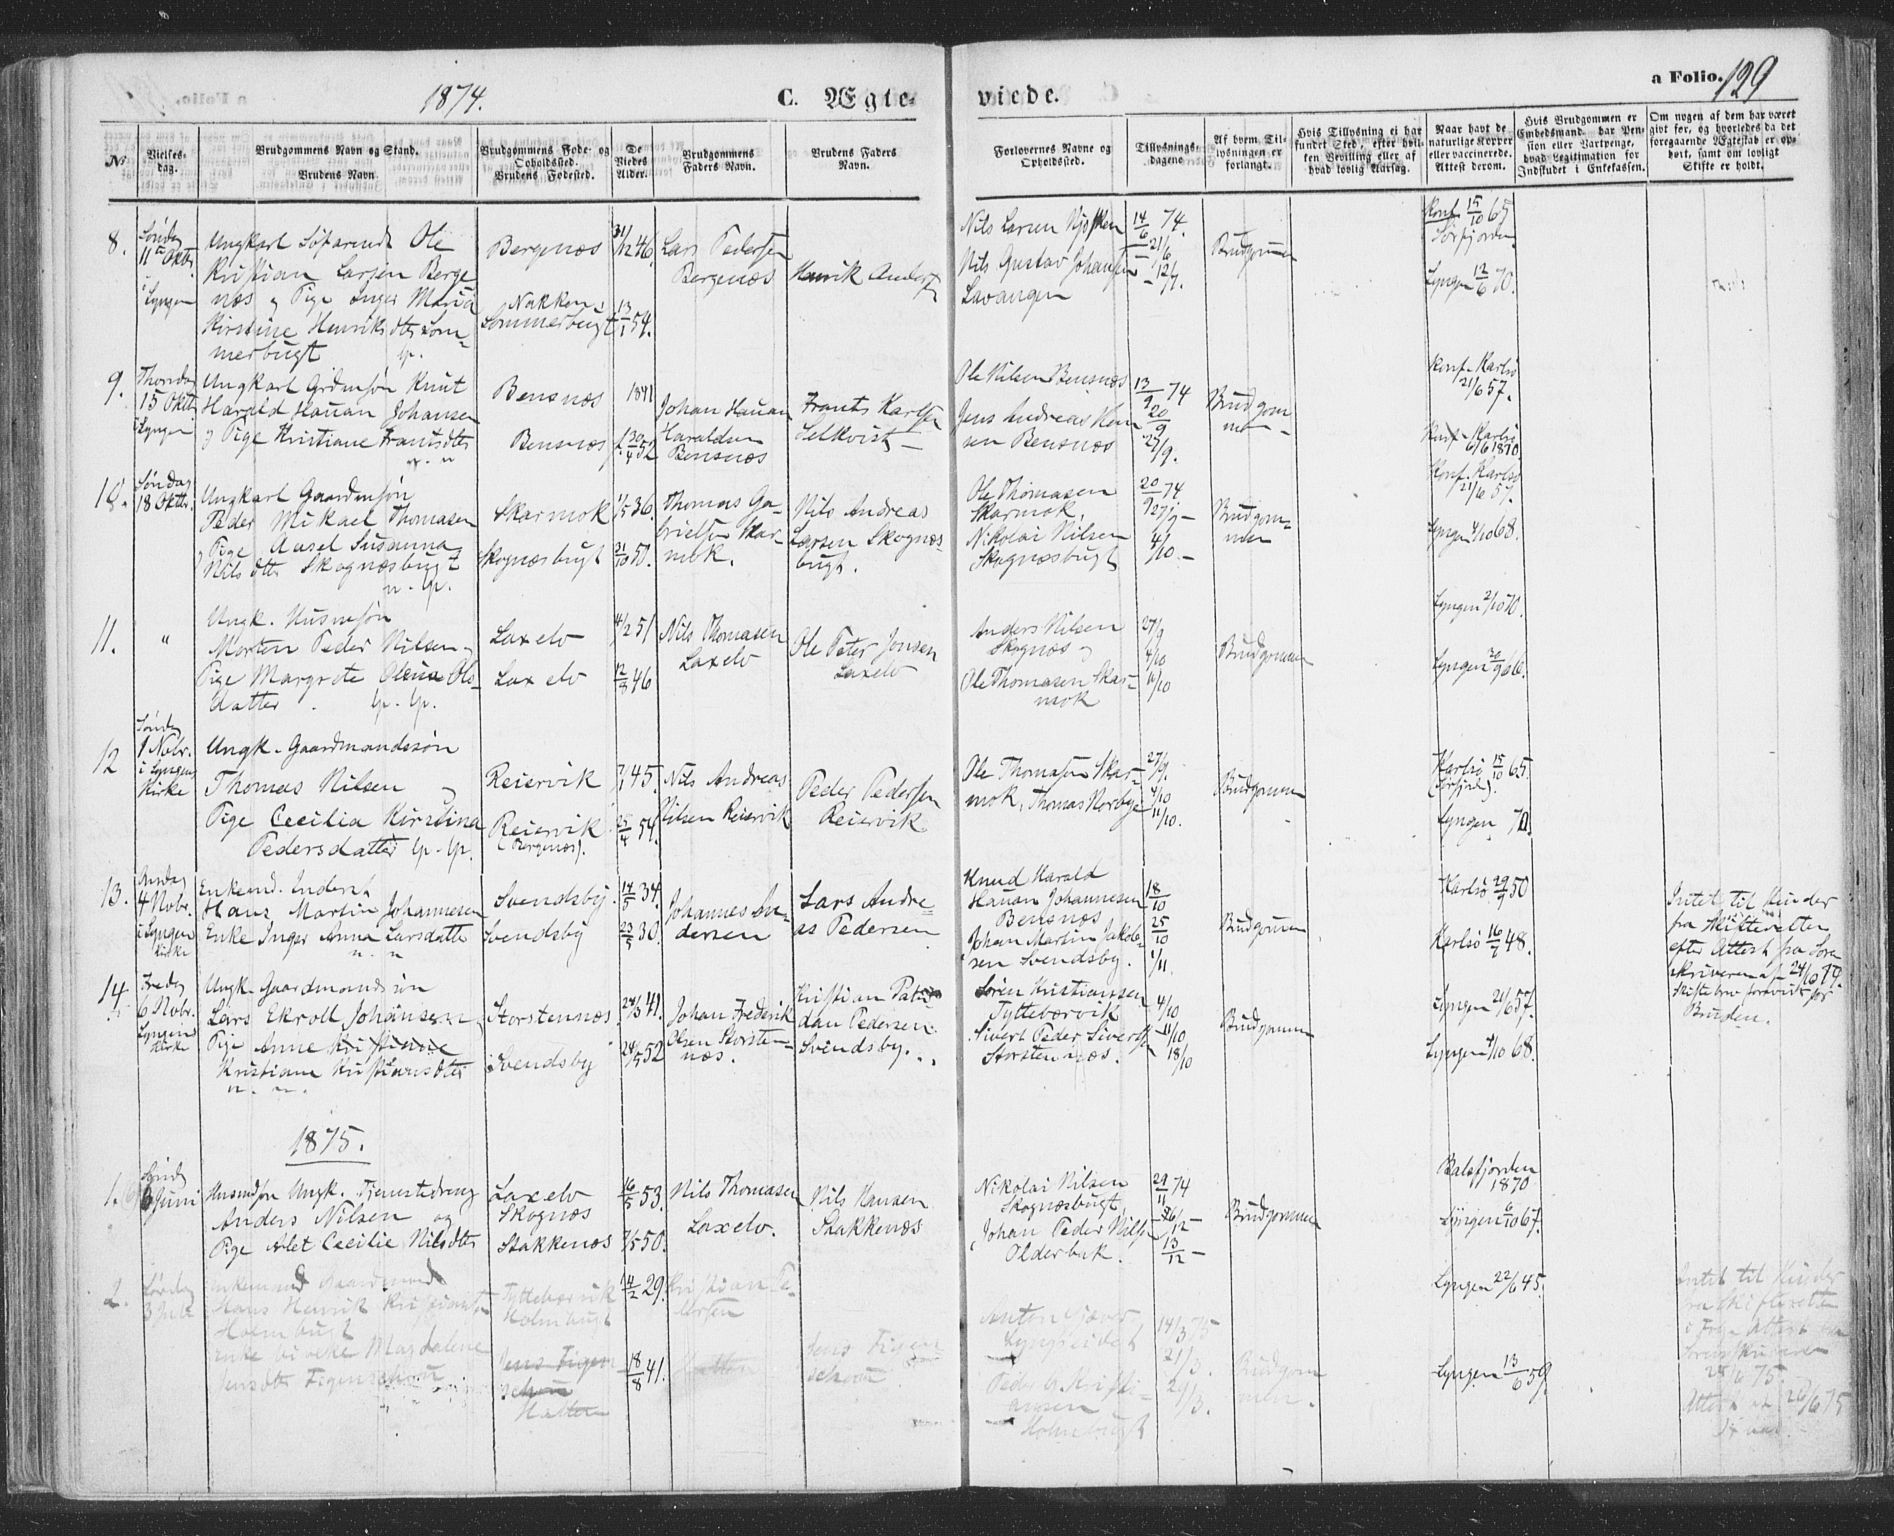 1874.
C. Ægte-
viede.
a Folio. 129
No.
Vielses-
dag.
Brudgommens Navn og Stand.
Brudens Navn
Brudgommens Føde- og
Opholdssted.
Brudens Fødested.
De
Viedes
Alder.
Brudgommens
Faders Navn.
Brudens Faders
Navn.
Forlovernes Navne og
Opholdssted.
Tillysnings-
dagene
Af hvem Til-
lysningen er
forlangt.
Hvis Tillysning ei har
fundet Sted, efter hvil-
ken Bevilling eller af
hvad lovlig Aarsag.
Naar havt de
naturlige Kopper
eller vaccinerede.
Attest derom.
Hvis Brudgommen er
Embedsmand, har Pen-
sion eller Vartpenge,
hvad Legitimation for
Indskudet i Enkekassen.
Om nogen af dem har været
gift før, og hvorledes da det
foregaaende Ægteskab er op-
hørt, samt om lovligt
Skifte er holdt.
8.
Søndag
11te Oktbr.
i
Lyngen
Ungkarl Ole
Kristian Larsen Berge
næs og Pige Inger Maria
Kirstine Henriksdtr Som-
merbugt
Bergenæs
Sommerbugt
31/12 46.
13/1 54.
Lars Pedersen
Bergenæs
Henrik Anders
Nils Larsen
Nils Gustav Johansen
Lavangen
14/6 74.
21/6
12/7.
Brudgommen
Konf. 15/10 65
Sørfjorden
Lyngen 12/6 70.
9.
Thorsdag
15 Oktbr.
i Lyngen
Ungkarl Knut
Harald Hauan Johansen
og Pige Kristiane Frantsdtr
Bensnæs
Bensnæs
1841
30/4 52
Johan Hauan
Haraldsen
Bensnæs
Frants Karlsen
Selkvist
Ole Nilsen Bensnæs
Jens Andreas Han
sen Bensnæs
13/9 74
20/9
27/9.
Brudgom
men
Konf. Karlsö
21/6 57.
Konf. Karlsö
6/6 1870.
10.
Søndag
18 Oktbr.
Ungkarl Gaardmsøn
Peder Mikael Thomasen
og Pige Susanna
Nilsdtr Skognæsbugt
Skarmok
Skognæsbugt
1/5 36.
21/10 50.
Thomas Ga-
brielsen Skar-
mok.
Nils Andreas
Larsen Skognæs-
bugt.
Ole Thomasen
Skarmok,
Nikolai Nilsen
Skognæsbugt
20/9 74.
27/9
4/10
Brudgom-
men
Konf. Karlsö
21/6 57.
Lyngen 4/10 68.
11.
"
Ungk. Husmsøn
Morten Peder Nilsen
Pige Margrete Olina Ols-
datter
Laxelv
Laxelv
4/2 51
12/8 46
Nils Thomasen
Laxelv
Ole Peter Jonsen
Laxelv
Anders Nilsen
Skognæs
Ole Thomasen Skar-
mok
27/9
4/10
11/10
Brudgommen
Lyngen 2/10 70.
Lyngen 30/9 66.
12
Søndag
1 Nobr.
i Lyngens
Kirke
Ungk. Gaardmandssøn
Thomas Nilsen og
Pige Cecilia Kirstina
Pedersdatter
Reiervik
Reiervik
(Bergenæs).
7/1 45.
25/4 54.
Nils Andreas
Nilsen Reiervik
Peder Pedersen
Reiervik
Ole Thomasen Skar-
mok, Thomas Norbye
27/9.
4/10
11/10.
Brudgommen
Karlsö 15/10 65.
(Sørfjord).
Lyngen 70.
13.
Onsdag
4 Nobr.
i Lyngen
Kirke
Enkemd. Inderst
Hans Martin Johannesen
Enke Inger Anna Larsdatter
Svendsby
Svendsby
14/5 34.
23/5 30.
Johannes An-
dersen
Lars Andre-
as Pedersen
Knud Harald
Hauan Johannesen
Bensnæs
Johan Martin Jakob-
sen Svendsby.
18/10
25/10
1/11.
Brudgommen
Karlsö 29/9 50
Karlsö 16/7 48.
Intet til Hinder
fra Skifteretten
efter Attest fra Soren-
skriveren af 24/10 74.
Skiftebrev forevist for
Bruden.
14.
Fredag
6 Nobr.
Lyngens
Kirke
Ungk. Gaardmandssøn
Lars Ekroll Johansen
Pige Anne Kristinne
Kristiane Kristiansdtr
Storstennæs
Svendsby
24/3 41.
24/5 52
Johan Frederik
Olsen Storsten-
næs.
Kristian
dan Pedersen
Svendsby.
Søren Kristiansen
Tyttebærvik
Sivert Peder Sivertsen
Storstennæs.
4/10
11/10
18/10
Brudgommen
Lyngen 21/6 57.
Lyngen 4/10 68.
1875.
1.
Søndag
6 Juni
Husmdsøn Ungk. Tjenestedreng
Anders Nilsen og
Pige Arlet Cecilie Nilsdtr
Laxelv
Skognæs
Stakkenæs
16/5 53.
7/5 50.
Nils Thomasen
Laxelv.
Nils Hansen
Stakkenæs
Nikolai Nilsen
Skognæsbugt
Johan Peder Nilsen
Olderbak.
29/11 74
6/12
13/12
Brudgommen
Balsfjorden
1870
Lyngen 6/10 67.
2.
Lørdag
3 Juli
Enkemand Gaardmand
Hans Henrik Kristiansen
Holmbugt
Enke Magdalene
Jensdtr Figenschou
Tyttebærvik
Holmbugt
Jens Figen
schou
14/2 29.
18/8 41.
Kristian Pe-
dersen
Jens Figen
schou
Anton Gjæver
Lyngseidet
Peder A. Kristi-
ansen
Holmebugt
14/3 75
21/3.
29/3.
Brudgom
men.
Lyngen 22/6 45.
Lyngen 13/6 59.
Intet til Hinder
fra Skifteretten
Attest
Sorenskriveren
25/6 75.
Attest af 26/6 75